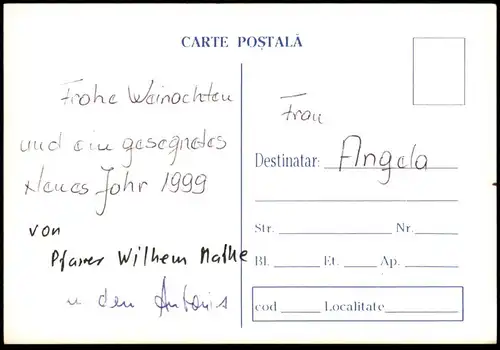 CARTE POȘTALĂ
Frohe Weinachten
und ein gesegnetes
Neues Jahr 1999
von
Pfarrer Wilhem Mathe
u den Antonis
Frau
Destinatar: Angela
Str. Nr.
Bl. Et. Ap.
cod Localitate